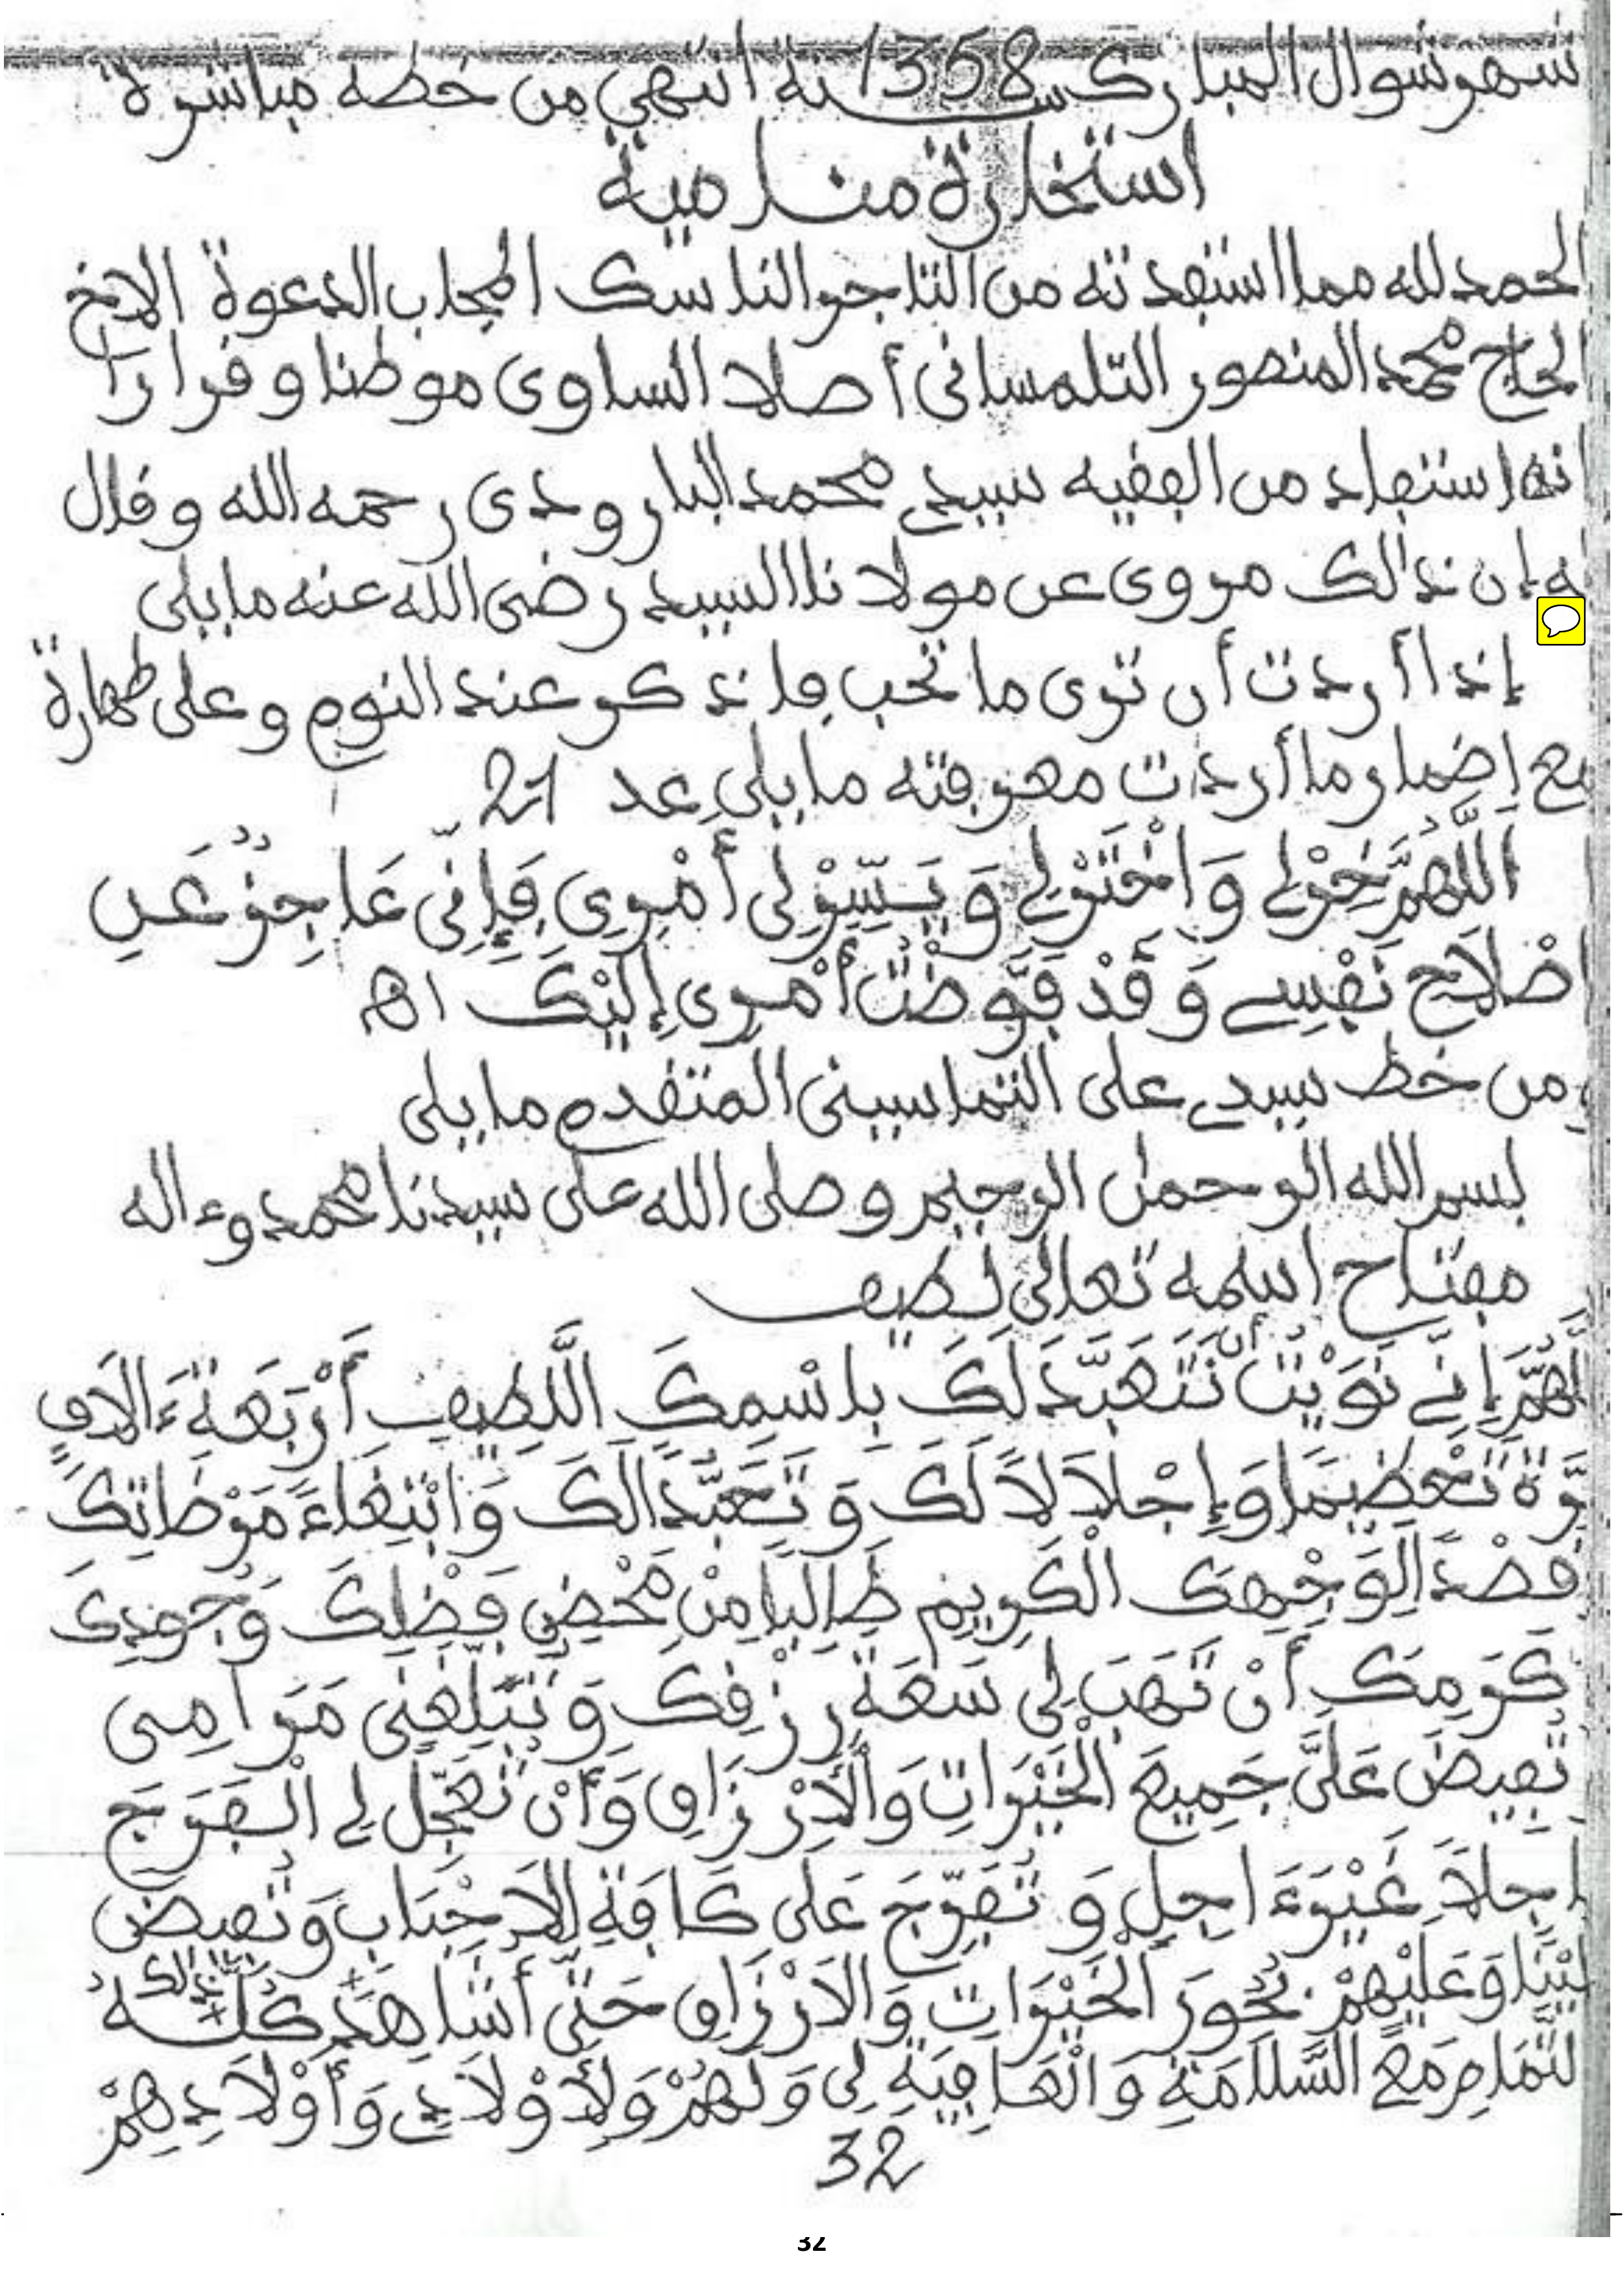 شهر شوال المبارك سنة 1358 انتهى من خطه مباشرة
استخارة منامية
الحمد لله مما استفدته من التاجر الناسك المجاب الدعوة الاخ
الحاج محمد المنصور التلمساني أصلا السلوى موطنا و قرارا
انه استفاد من الفقيه سيدي محمد البارودى رحمه الله و قال
له إن ذالك مروى عن مولانا السيد رضى الله عنه ما يلى
إذا أردت أن ترى ما تحب فاذكر عند النوم و على طهارة
مع إضمار ما أردت معرفته ما يلى عد 21
اللَّهُمَّ خِرْ لِي وَاخْتَرْ لِي وَ يَسِّرْ لِى أَمْرِى فَإِنِّى عَاجِزٌ عَنِ
اصْلَاحِ نَفْسِى وَ قَدْ فَوَّضْتُ أَمْرِى إِلَيْكَ اهـ
و من خط سيدي على التماسينى المتقدم ما يلى
بسم الله الرحمان الرحيم و صلى الله على سيدنا محمد وءاله
مفتاح اسمه تعالى لطيف
اللَّهُمَّ إِنِّي نَوَيْتُ أن نَتَعَبَّدَ لَكَ بِاسْمِكَ اللَّطِيفِ أَرْبَعَةَ ءَالَافِ
مَرَّة تَعْظِيمًا وَإِجْلَالًا لَكَ وَ تَعَبُّدًا لَكَ وَابْتِغَاءَ مَرْضَاتِكَ
وقَصْدًا لِوَجْهِكَ الْكَرِيمِ طَالِبًا مِنْ مَحْضِ فَضْلِكَ وَجُودِكَ
وكَرَمِكَ أَنْ تَهَبَ لِى سَعَةَ رِزْقِكَ وَ تُبَلِّغَنِى مَرَامِى
وتُفِيضَ عَلَىَّ جَمِيعَ الْخَيْرَاتِ وَالْأَرْزَاقِ وَأَنْ تُعَجِّلَ لِي الْفَرَجَ
عاجِلًا غَيْرَ ءَاجِلٍ وَ تُفَرِّجَ عَلَى كَافَّةِ الْأَحْبَابِ وَتُفِيضَ
عَلَيْنَا وَعَلَيْهِمْ بُحُورَ الْخَيْرَاتِ وَالْأَرْزَاقِ حَتَّى أُشَاهِدَ ذَالِكَ كُلَّهُ
بالتَّمَامِ مَعَ السَّلَامَةِ وَالْعَافِيَةِ لِى وَ لَهُمْ وَلِأَوْلَادِي وَأَوْلَادِهِمْ
32
32